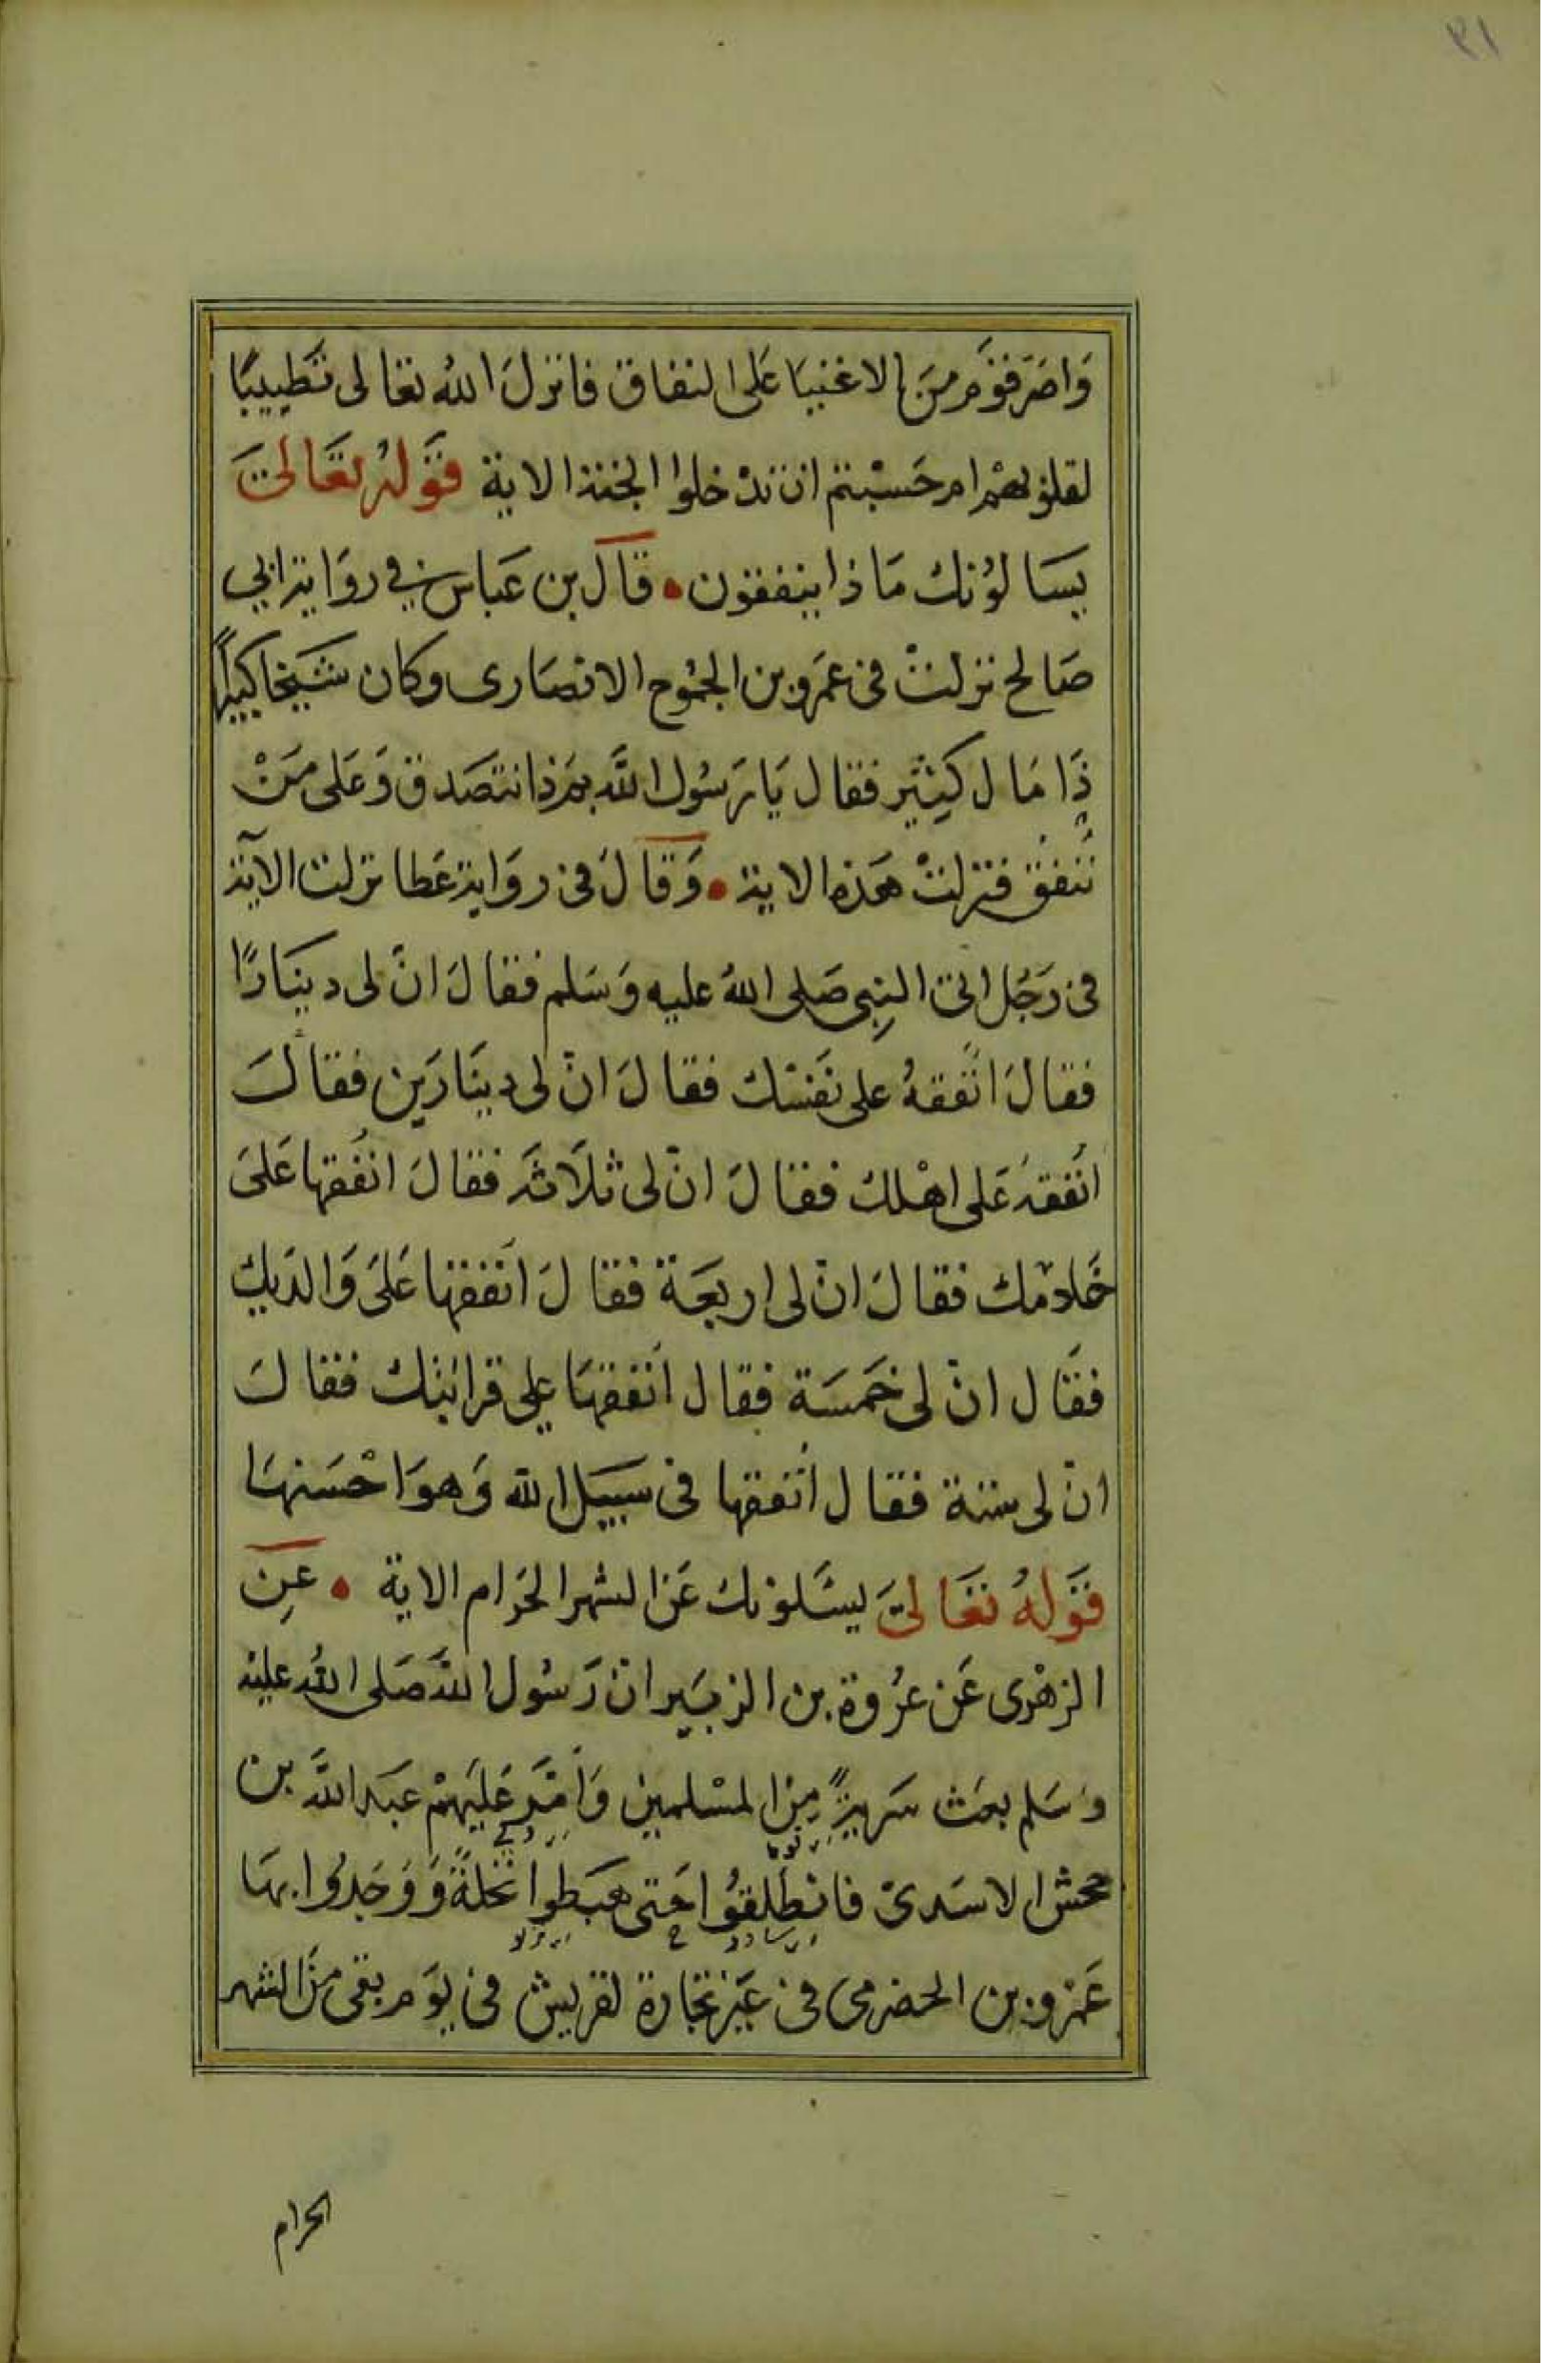 ٢١
وَاصَرَّ قوم منَ الاغنيا عَلى النفاق فانزلَ اللهُ تعَالى تَطييبًا
لقلوبهمْ ام حَسْبتم ان تدْخلوا الجنة الاية قَوَلهُ تعَالىَ
يسَالوُنك مَاذا ينفقون • قالَ بن عَباس في روَاية ابي
صَالح نزلتْ فى عمَرو بن الجمُوح الانصَارى وكان شيَخا كبيراً
ذَا مَال كثِير فقال يَا رَسُول الله بمَ ذا نتصَدق وَعَلى مَنْ
نُنفقُ فنزلتْ هَذه الاية • وَقالَ فى روَاية عَطا نزلت الآية
فى رَجُل اتى النبِى صَلى اللهُ عليه وَسَلم فقالَ انّ لى دينَارًا
فقالَ انْفقهُ على نفَسْك فقالَ انّ لى دينَارَين فقالَ
انْفقهُ عَلى اهْلك فقالَ انّ لى ثلَاثَه فقالَ انْفقها عَلىَ
خَادمك فقالَ انّ لى اربعَة فقالَ انْفقها عَلىَ وَالدَيك
فقَال انّ لى خَمسَة فقال انْفقهَا على قرابتك فقالَ
انّ لى ستة فقال انْفقها فى سبيَل الله وَهوَ احْسَنهَا
قَوَلهُ تعَالىَ يسَئلونك عَن الشهر الحرَام الاية • عَنِ
الزهْرى عَن عرُوة بن الزبَير انّ رَسُول اللهَ صَلى اللهُ عليْه
وَسَلم بعَث سَريةً مِن المسْلمين وَأمّرَ عَليَهمْ عبَد اللهَ بن
جحش الاسَدىْ فانطلقُوا حَتى هبَطوا نخلةً وَوَجَدُوا بهَا
عَمْرو بن الحضرمى فى عيَر تجَارة لقريش فى يوَم بقى منَ الشهر
الحرام